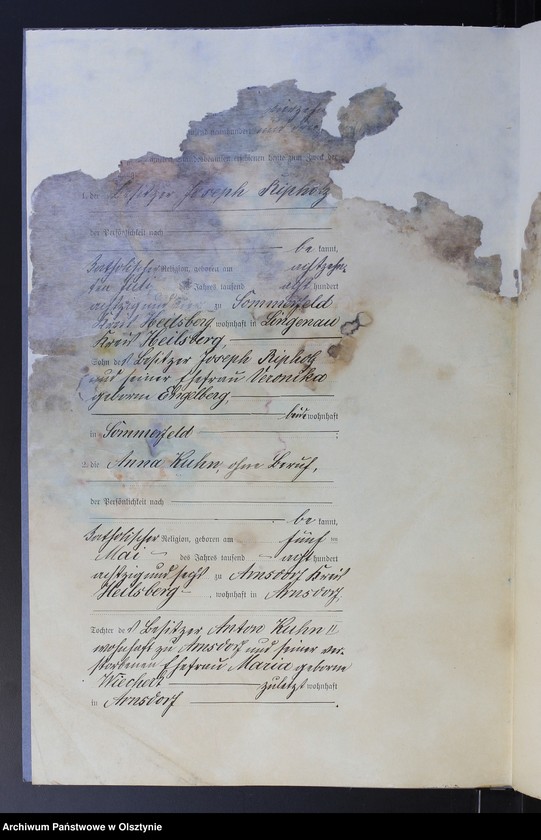 tausend neunhundert
1. der Besitzer Joseph Ripholz
der Persönlichkeit nach
be kannt,
katholischer Religion, geboren am achtzehn-
ten Juli des Jahres tausend acht hundert
achtzig und zu Sommerfeld
Kreis Heilsberg, wohnhaft in Lingenau
Kreis Heilsberg,
Sohn des Besitzer Joseph Ripholz
und seiner Ehefrau Veronika
geborene Engelberg,
beide wohnhaft
in Sommerfeld
2. die Anna Kuhn, ohne Beruf,
der Persönlichkeit nach
be kannt,
katholischer Religion, geboren am fünf ten
Mai des Jahres tausend acht hundert
achtzig und sechs zu Arnsdorf Kreis
Heilsberg, wohnhaft in Arnsdorf,
Tochter des Besitzer Anton Kuhn II
wohnhaft zu Arnsdorf und seiner ver-
storbenen Ehefrau Maria geborne
Wiechert zuletzt wohnhaft
in Arnsdorf
Archiwum Państwowe w Olsztynie